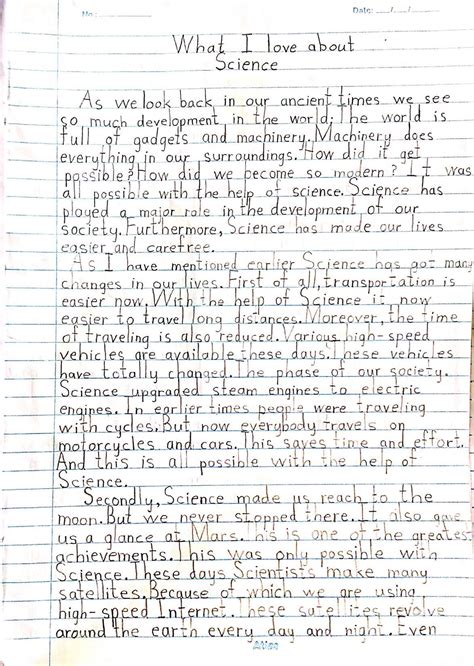 No.:
Date: __/__/__
What I love about
Science
As we look back in our ancient times we see
so much development in the world. The world is
full of gadgets and machinery. Machinery does
everything in our surroundings. How did it get
possible? How did we become so modern? It was
all possible with the help of science. Science has
played a major role in the development of our
society. Furthermore, Science has made our lives
easier and carefree.
As I have mentioned earlier Science has got many
changes in our lives. First of all, transportation is
easier now. With the help of Science it now
easier to travel long distances. Moreover, the time
of traveling is also reduced. Various high-speed
vehicles are available these days. These vehicles
have totally changed. The phase of our society.
Science upgraded steam engines to electric
engines. In earlier times people were traveling
with cycles. But now everybody travels on
motorcycles and cars. This saves time and effort.
And this is all possible with the help of
Science.
Secondly, Science made us reach to the
moon. But we never stopped there. It also gave
us a glance at Mars. his is one of the greatest
achievements. This was only possible with
Science. These days Scientists make many
satellites. Because of which we are using
high-speed Internet. These satellites revolve
around the earth every day and night. Even